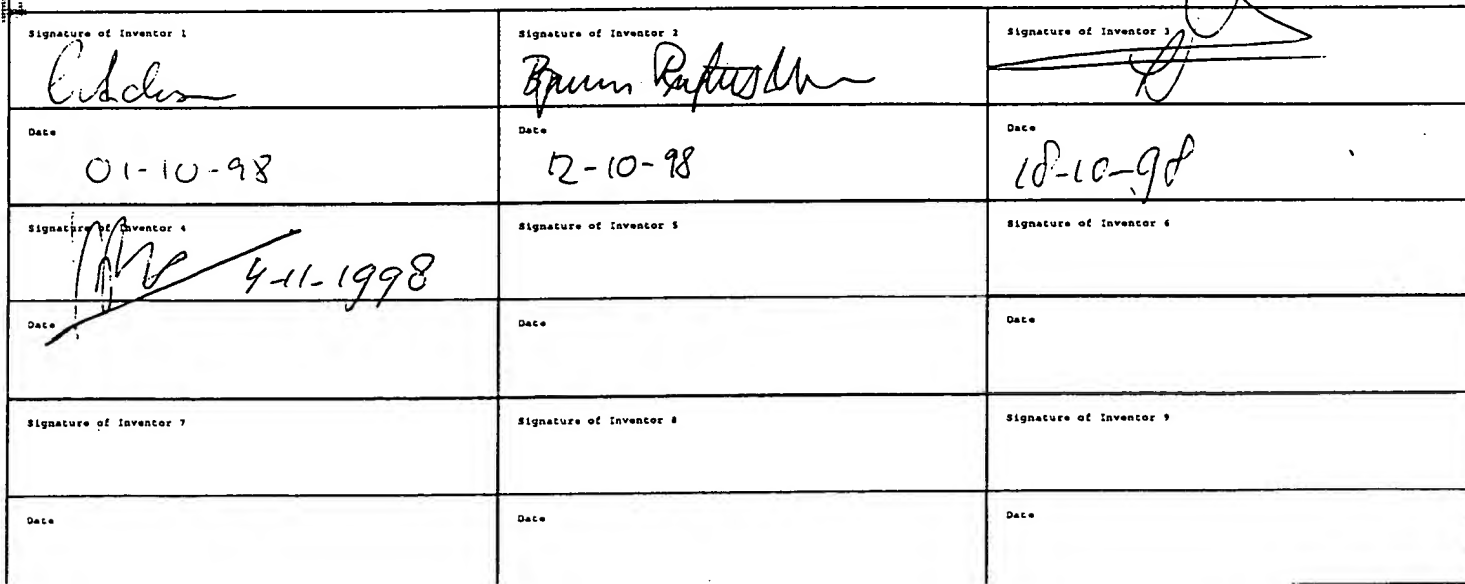 Signature of Inventor 1 Signature of Inventor 2 Signature of Inventor 3
Date Date Date
01-10-98 12-10-98 18-10-98
Signature of Inventor 4 Signature of Inventor 5 Signature of Inventor 6
4-11-1998
Date Date Date
Signature of Inventor 7 Signature of Inventor 8 Signature of Inventor 9
Date Date Date